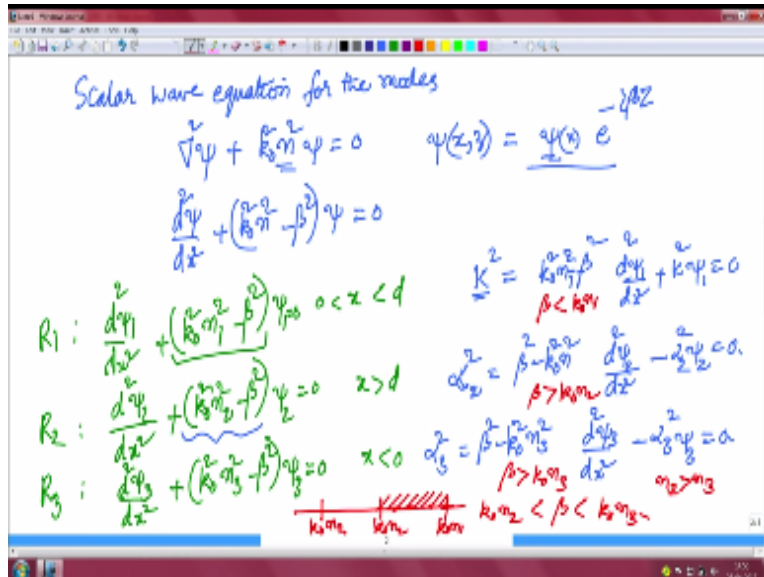 Scalar wave equation for the modes
∇²ψ + k₀²n²ψ = 0    ψ(x,z) = ψ(x) e^{-iβz}
d²ψ/dx² + (k₀²n² - β²) ψ = 0
K² = k₀²n₁² - β²    d²ψ₁/dx² + K²ψ₁ = 0
β < k₀n₁
R₁ : d²ψ₁/dx² + (k₀²n₁² - β²)ψ₁ = 0    0 < x < d
α₂² = β² - k₀²n²    d²ψ₂/dx² - α₂²ψ₂ = 0
β > k₀n₂
R₂ : d²ψ₂/dx² + (k₀²n₂² - β²)ψ₂ = 0    x > d
α₃² = β² - k₀²n₃²    d²ψ₃/dx² - α₃²ψ₃ = 0
β > k₀n₃    n₂ > n₃
R₃ : d²ψ₃/dx² + (k₀²n₃² - β²)ψ₃ = 0    x < 0
k₀n₂ < β < k₀n₃
k₀n₂    k₀n₂    k₀n₁